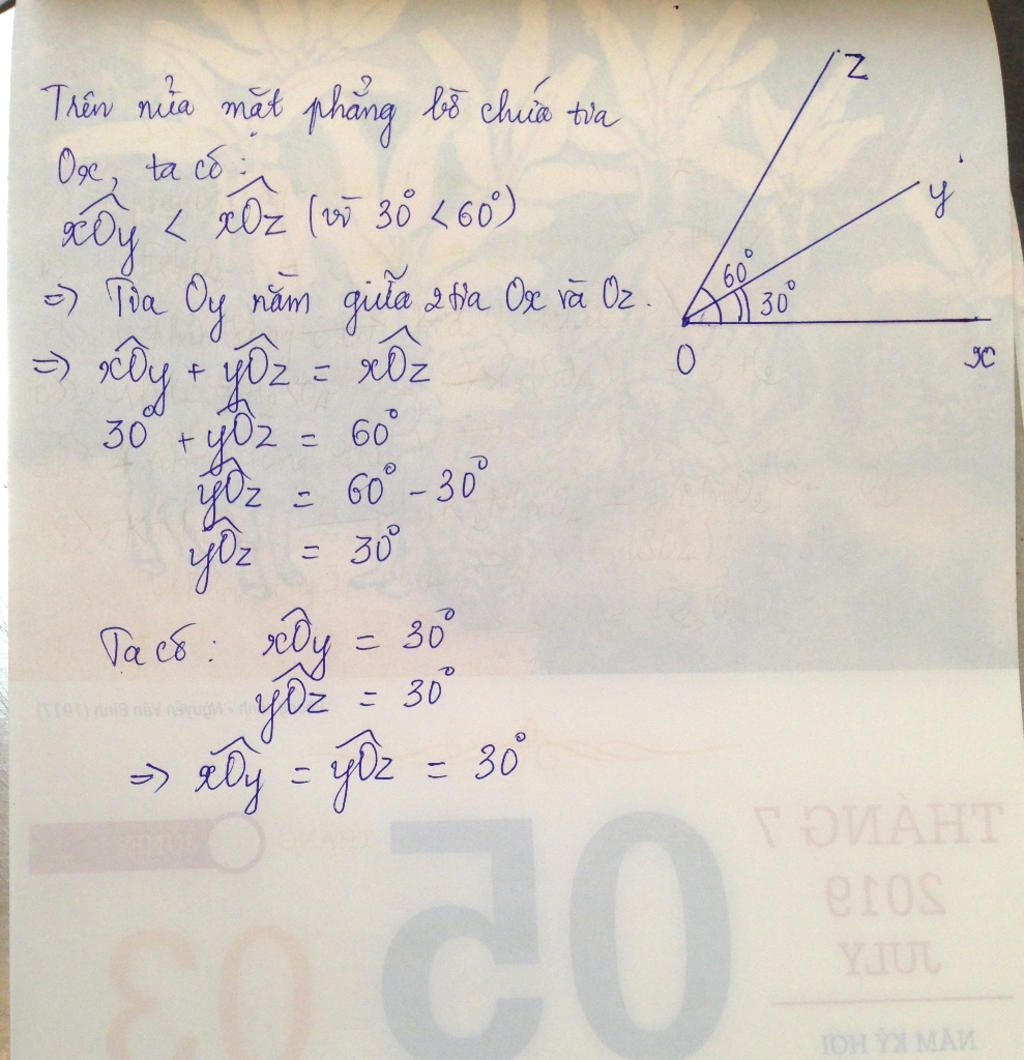 Trên nửa mặt phẳng bờ chứa tia
Ox, ta có:
xÔy < xÔz (vì 30° < 60°)
=> Tia Oy nằm giữa 2 tia Ox và Oz.
=> xÔy + yÔz = xÔz
30° + yÔz = 60°
yÔz = 60° - 30°
yÔz = 30°
Ta có: xÔy = 30°
yÔz = 30°
=> xÔy = yÔz = 30°
z
y
60°
30°
O
x
Nguyễn Văn Bình (1917)
05
THÁNG 7
2019
JULY
03
NĂM KỶ HỢI